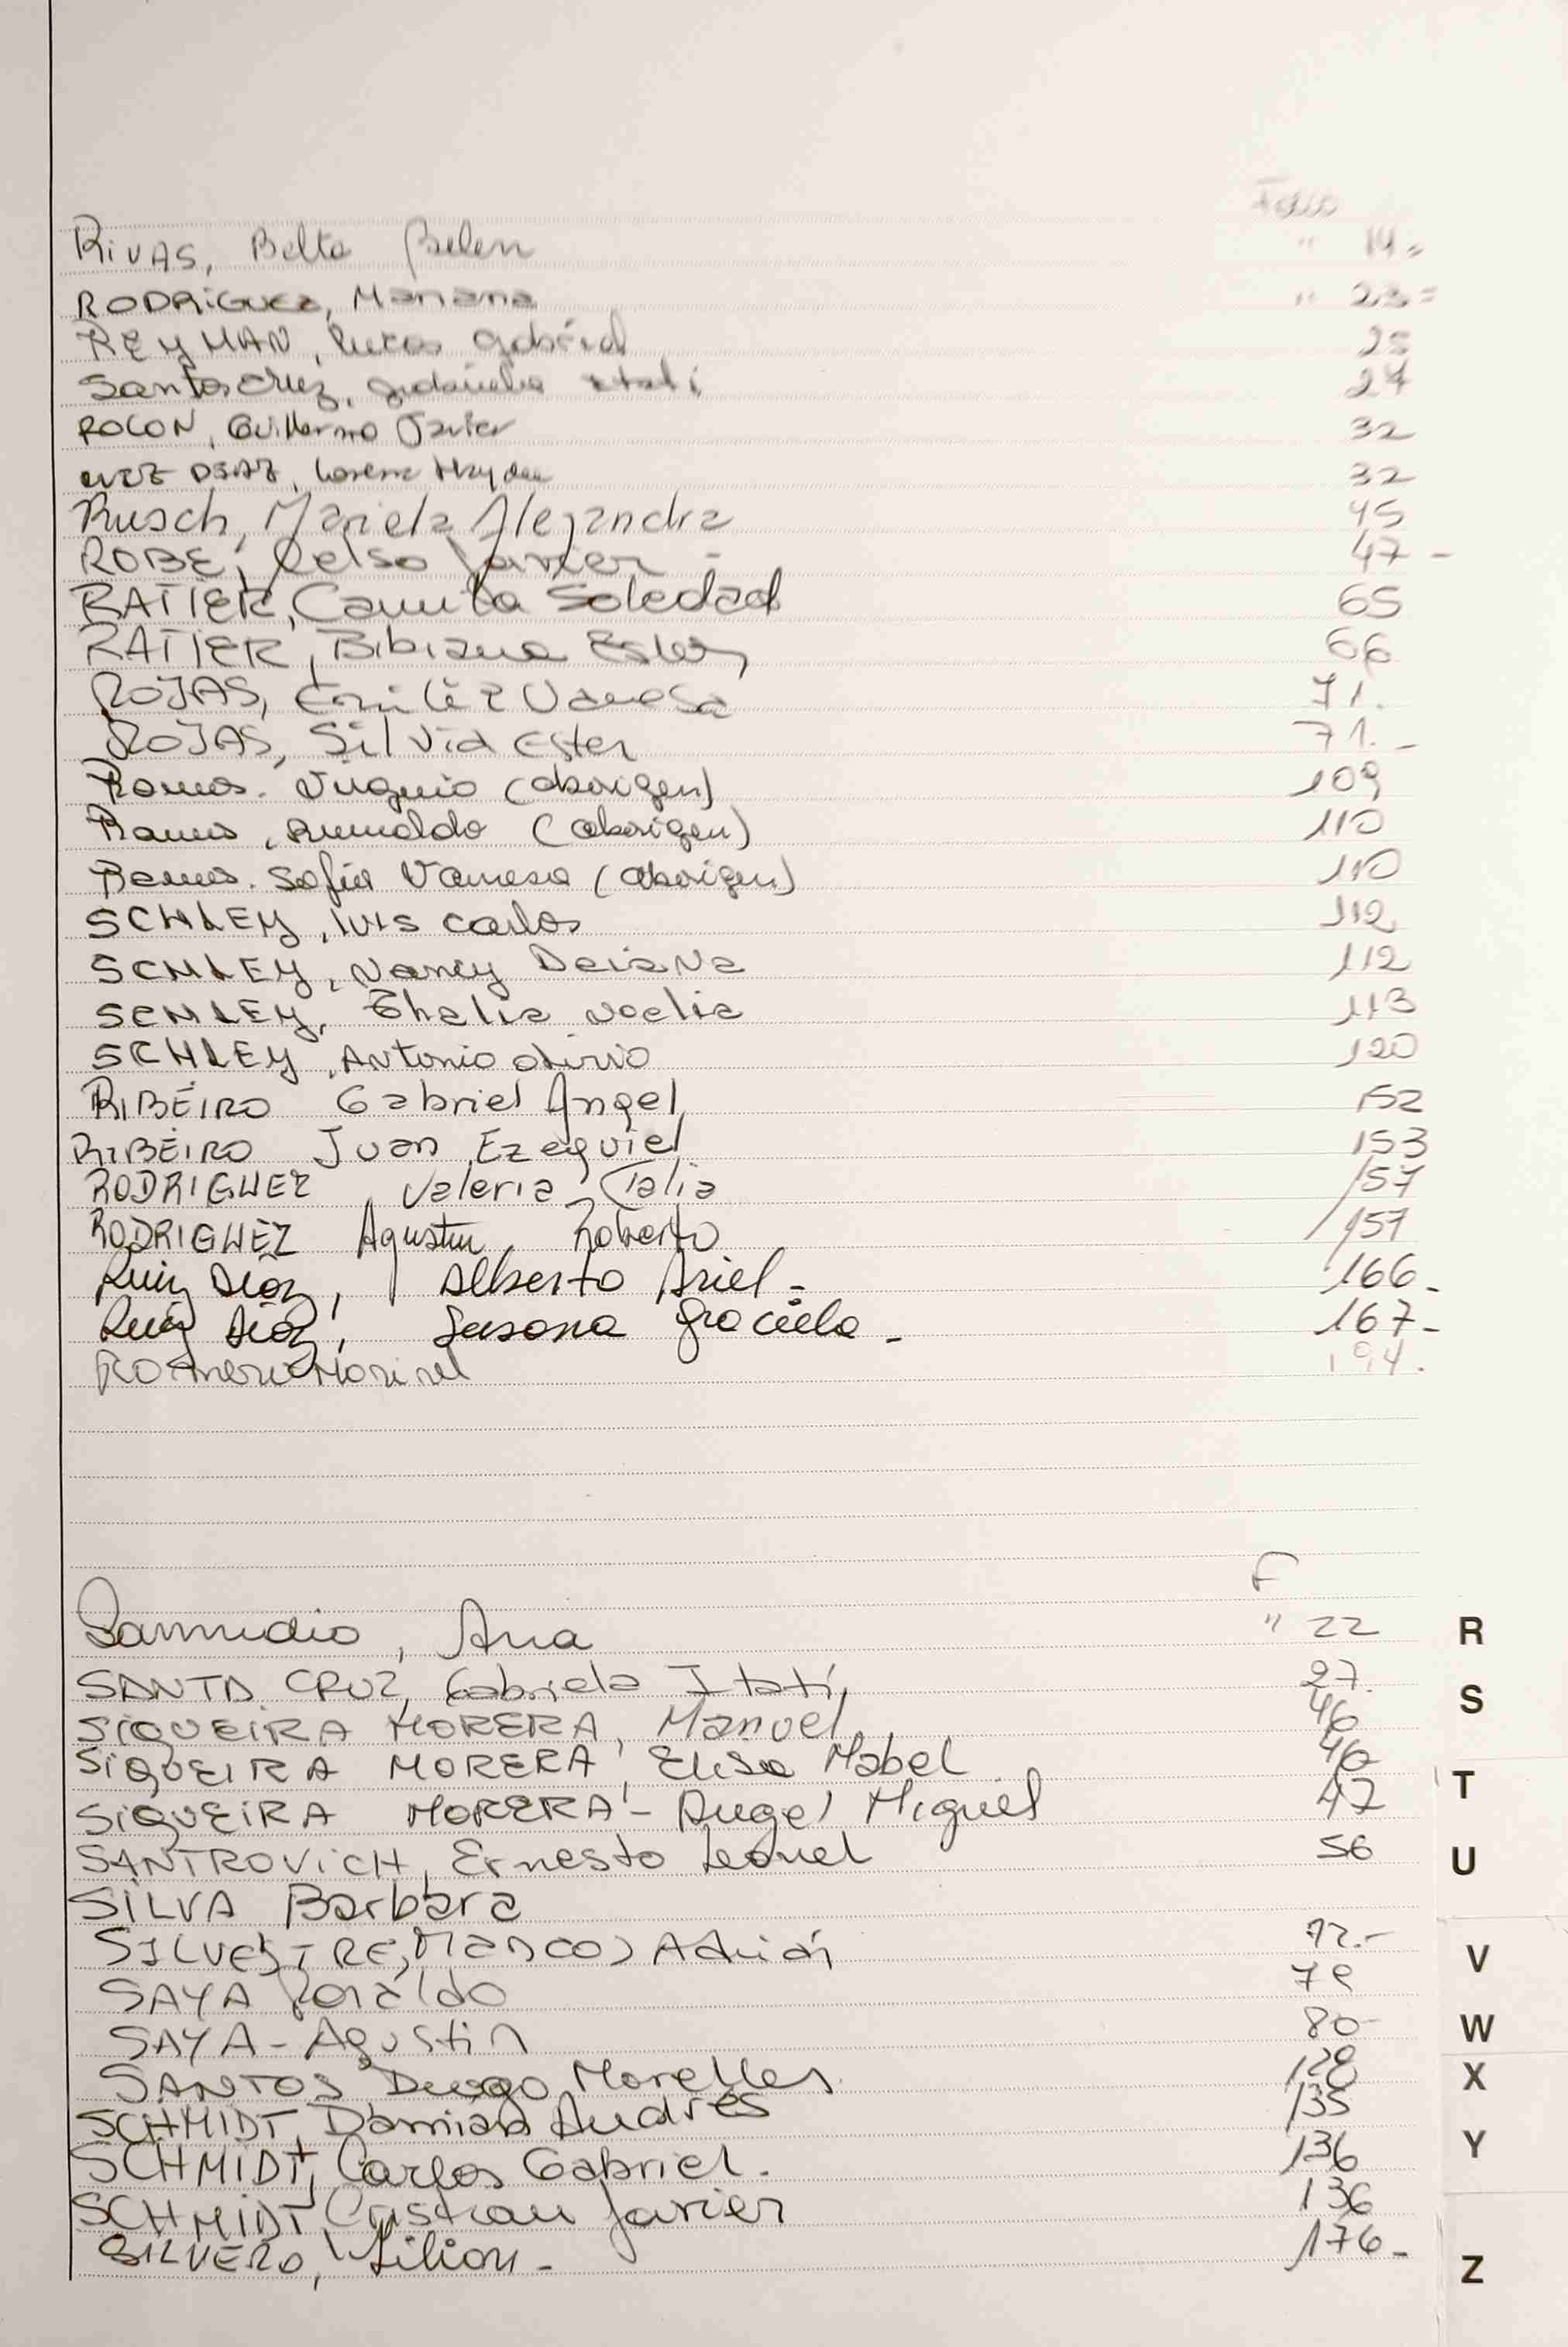 Folio
RIVAS, Belta Belen " 14=
RODRIGUEZ, Mariana " 23=
REYMAN, Lucas Gabriel 25
Santa Cruz, Gabriela Itatí 27
ROLON, Guillermo Javier 32
RUIZ DIAZ, Lorena 32
Rusch, Mariela Alejandra 45
ROBE, Celso Javier - 47 -
RATIER, Camila Soledad 65
RATIER, Bibiana Ester 66
ROJAS, Vanesa 71.
ROJAS, Silvia Ester 71.-
Ramos. Virginio (aborigen) 109
Ramos, Rumaldo (aborigen) 110
Ramos. Sofia Vanesa (aborigen) 110
SCHLEY, luis Carlos 112
SCHLEY, Nancy Daiana 112
SCHLEY, Thalia Noelia 113
SCHLEY, Antonio 120
RIBEIRO Gabriel Angel 152
RIBEIRO Juan Ezequiel 153
RODRIGUEZ Valeria Talia 157
RODRIGUEZ Agustin Roberto 157
Ruiz Díaz, Alberto Ariel - 166-
Ruiz Díaz, Susana Graciela - 167-
Romero Marinel 194.
F
Samudio, Ana " 22
SANTA CRUZ, Gabriela Itatí, 27.
SIQUEIRA MORERA, Manuel 46
SIQUEIRA MORERA, Elisa Mabel 46
SIQUEIRA MORERA - Angel Miguel 47
SANTROVICH, Ernesto Leonel 56
SILVA Barbara
SILVESTRE, Marcos Adrián 72.-
SAYA Ronaldo 79
SAYA - Agustin 80-
SANTOS Diego Morelles 128
SCHMIDT, Damián Andrés 135
SCHMIDT, Carlos Gabriel. 136
SCHMIDT, Cristian Javier 136
SILVERO, Lilian - 176-
R
S
T
U
V
W
X
Y
Z